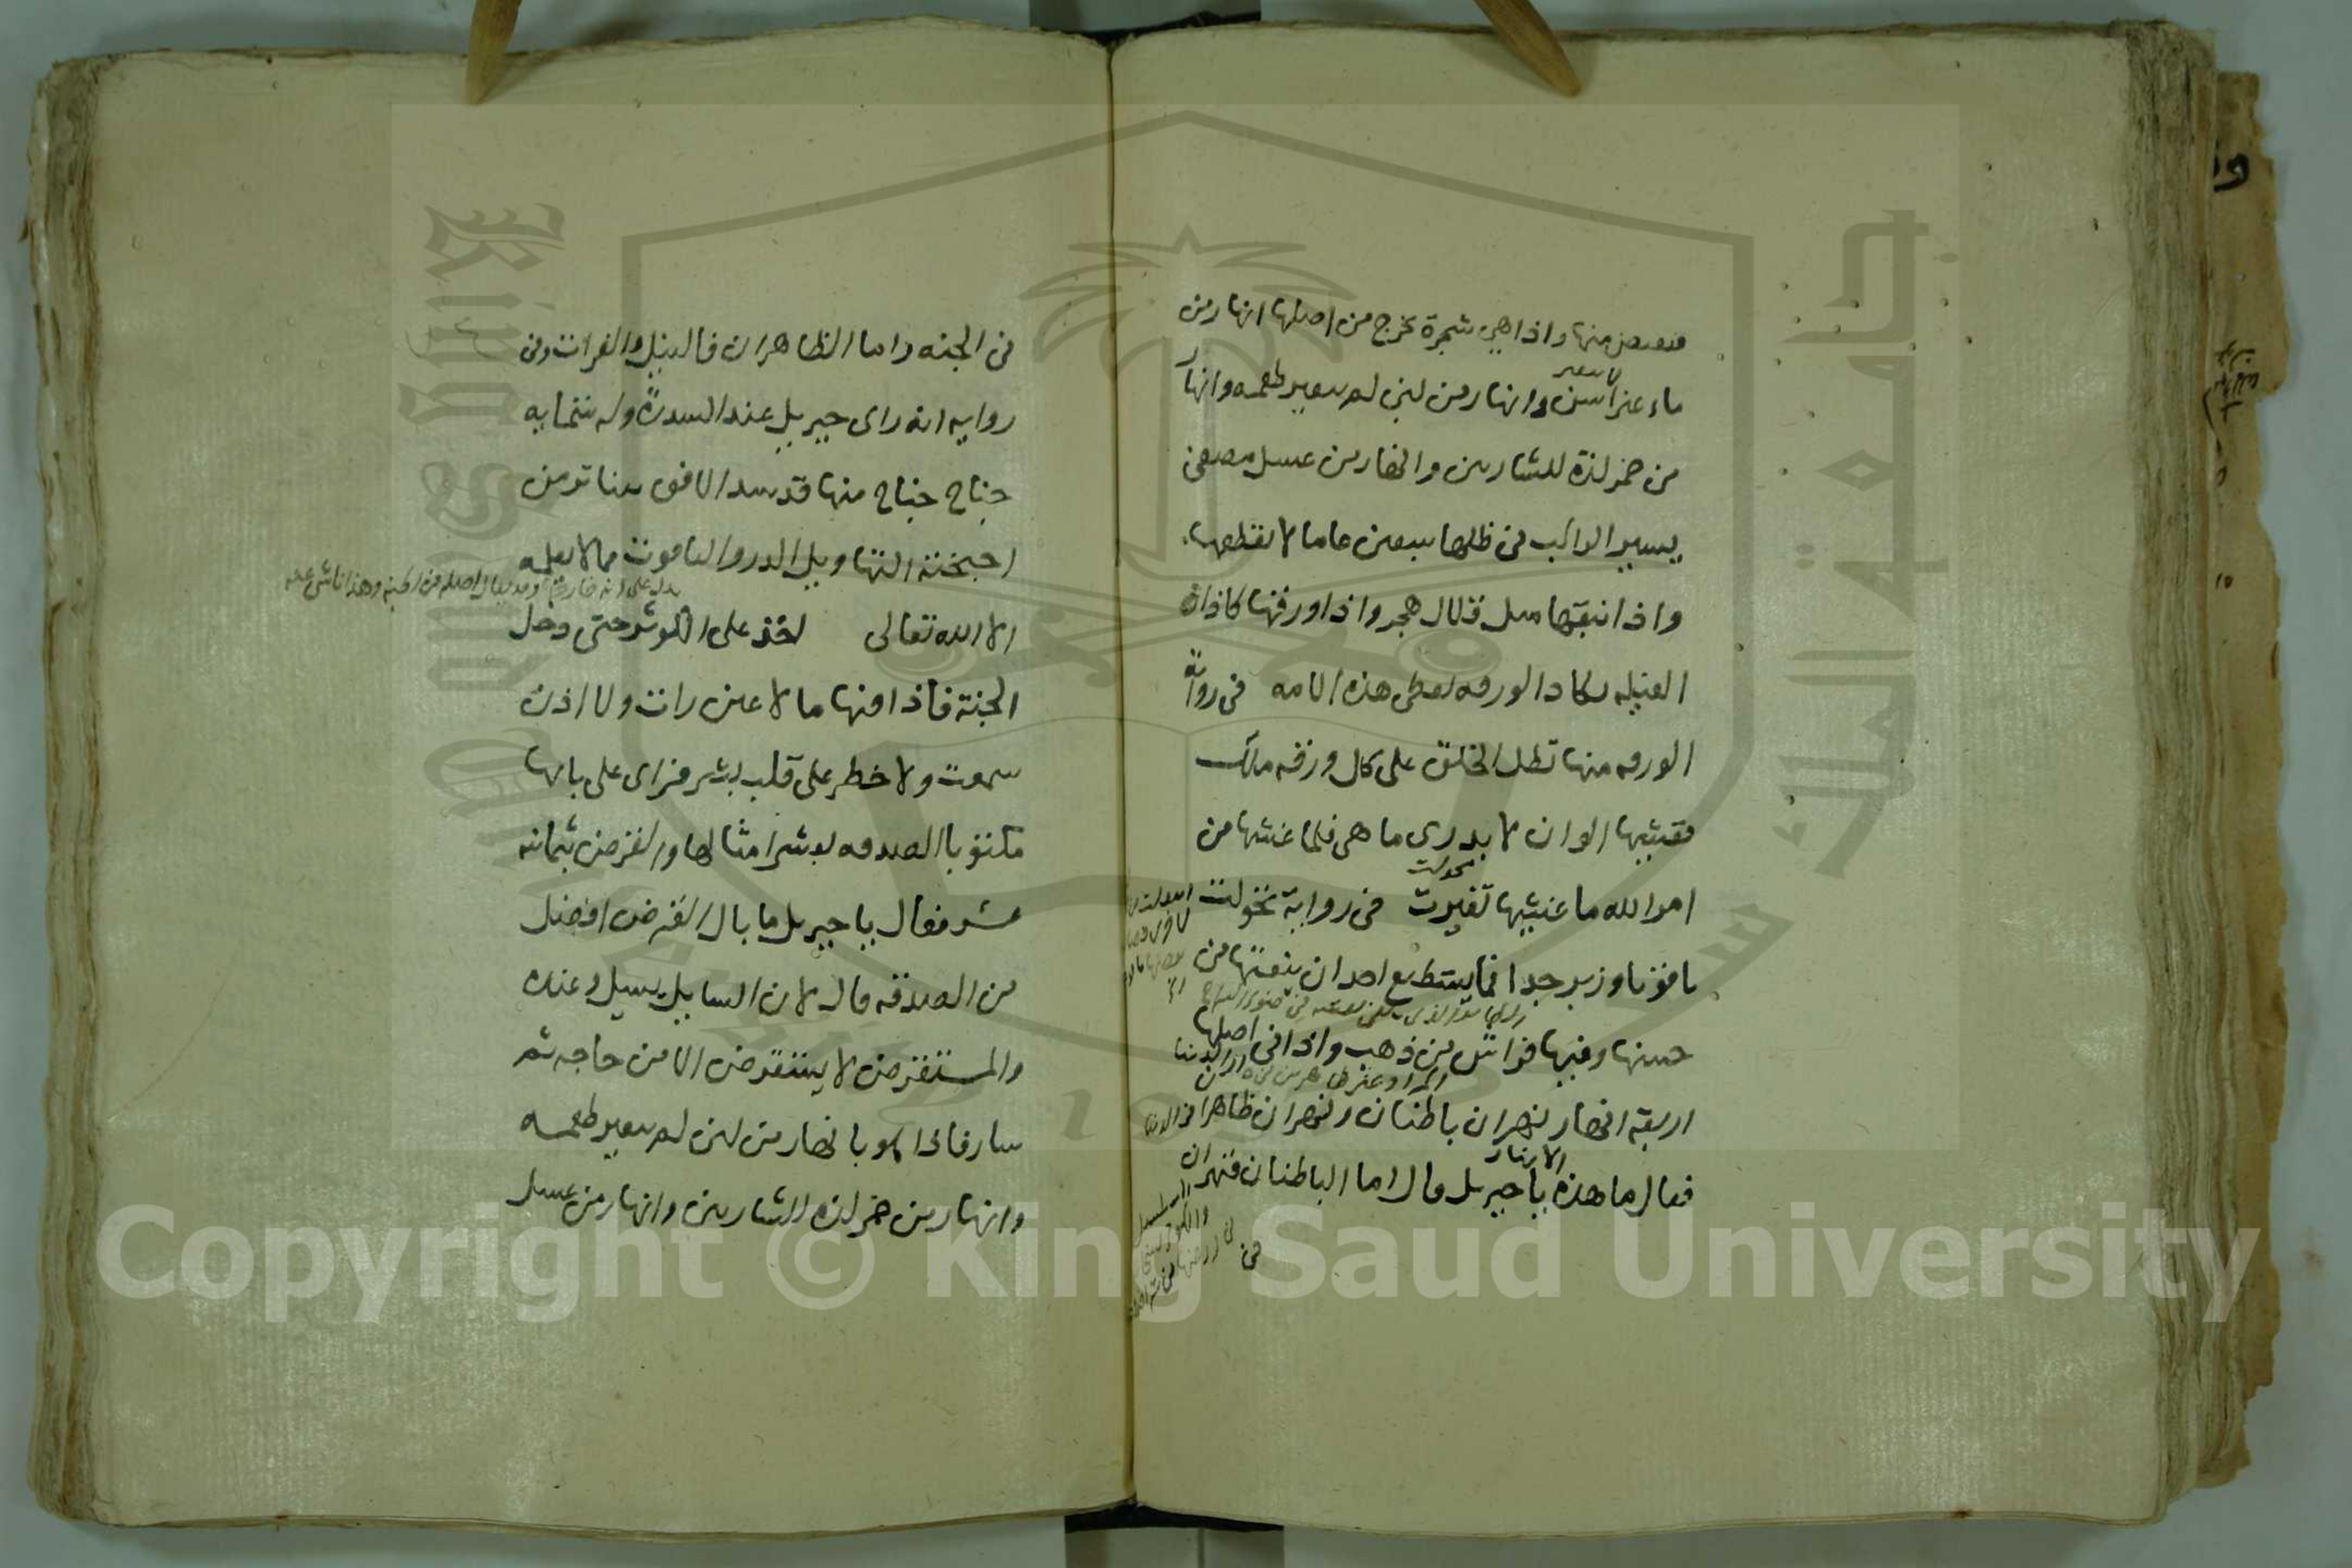 فيقبض منها واذا هي شجرة تخرج من اصلها انهار من
ماء غير اسن وانهار من لبن لم يتغير طعمه وانهار
من خمر لذة للشاربين وانهار من عسل مصفى
يسير الراكب في ظلها سبعين عاما لا يقطعها
واذا نبقها مثل قلال هجر واذا ورقها كاذان
الفيلة تكاد الورقه تغطى هذه الامه في رواية
الورقه منها تظل الخلق على كل ورقه ملك
فغشيها الوان لا يدرى ما هي فلما غشيها من
امر الله ما غشيها تغيرت في رواية تحولت
ياقوتا وزبرجدا فما يستطيع احد ان ينعتها من
حسنها وفيها فراش من ذهب واذا في اصلها
اربعة انهار نهران باطنان ونهران ظاهران
فقال ما هذه الانهار يا جبريل قال اما الباطنان فنهران
في
في الجنه واما الظاهران فالنيل والفرات وفي
روايه انه راى جبريل عند السدرة وله ستمايه
جناح جناح منها قد سد الافق يتناثر من
اجنحته التهاويل الدر والياقوت مما لا يعلمه
الا الله تعالى اخذ على الكوثر حتى دخل
الجنة فاذا فيها ما لا عين رات ولا اذن
سمعت ولا خطر على قلب بشر فراى على بابها
مكتوبا الصدقه بعشر امثالها والقرض بثمانيه
عشر فقال يا جبريل ما بال القرض افضل
من الصدقه قال لان السايل يسيل وعنده
والمستقرض لا يستقرض الا من حاجه ثم
سار فاذا هو بانهار من لبن لم يتغير طعمه
وانهار من خمر لذه للشاربين وانهار من عسل
Copyright © King Saud University